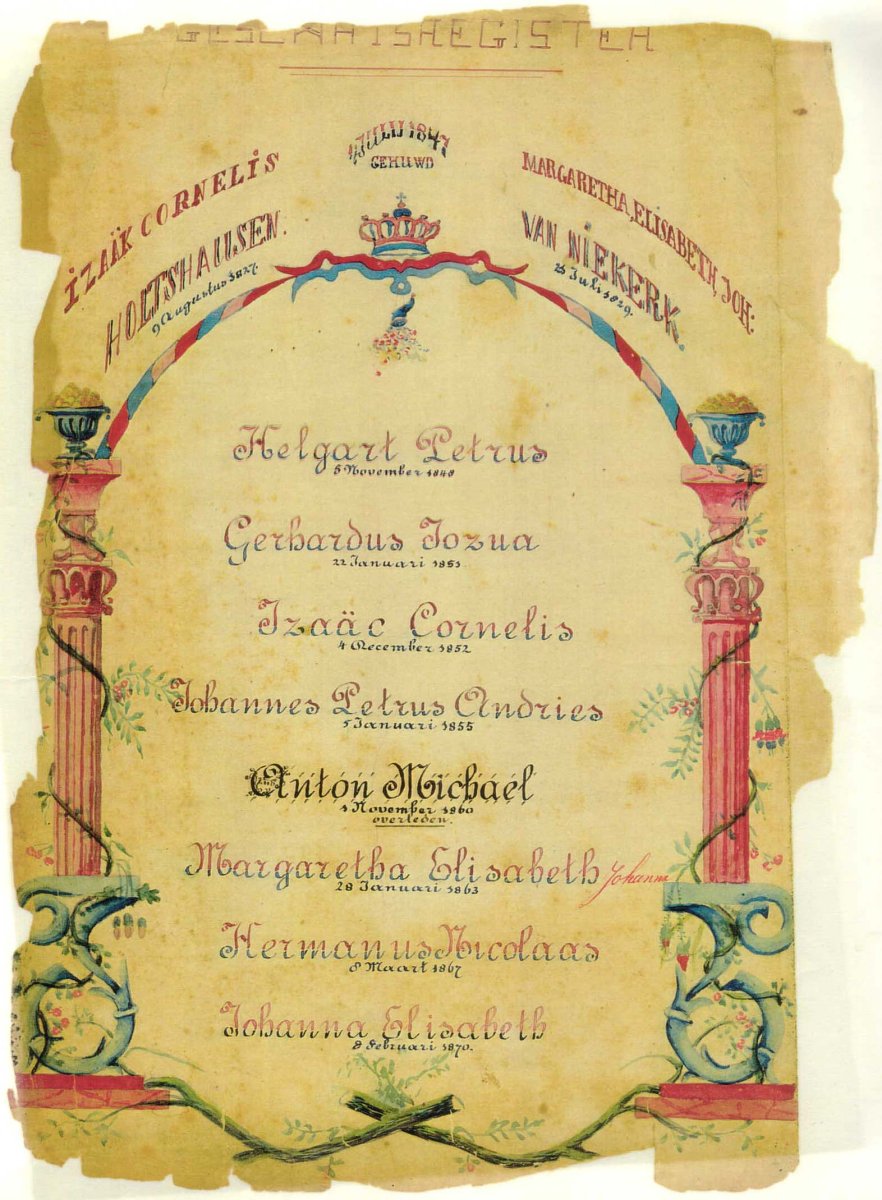 GESLAHTSREGISTER
4 JULIJ 1847
GEHUWD
IZAÄK CORNELIS
HOLTSHAUSEN.
9 Augustus 1827.
MARGARETHA, ELISABETH, JOH:
VAN NIEKERK.
25 Juli 1829.
Helgart Petrus
5 November 1848
Gerhardus Jozua
22 Januari 1851
Izaäc Cornelis
4 December 1852
Johannes Petrus Andries
5 Januari 1855
Anton Michaël
1 November 1860
overleden.
Margaretha Elisabeth Johanna
28 Januari 1863
Hermanus Nicolaas
8 Maart 1867
Johanna Elisabeth
8 Februari 1870.